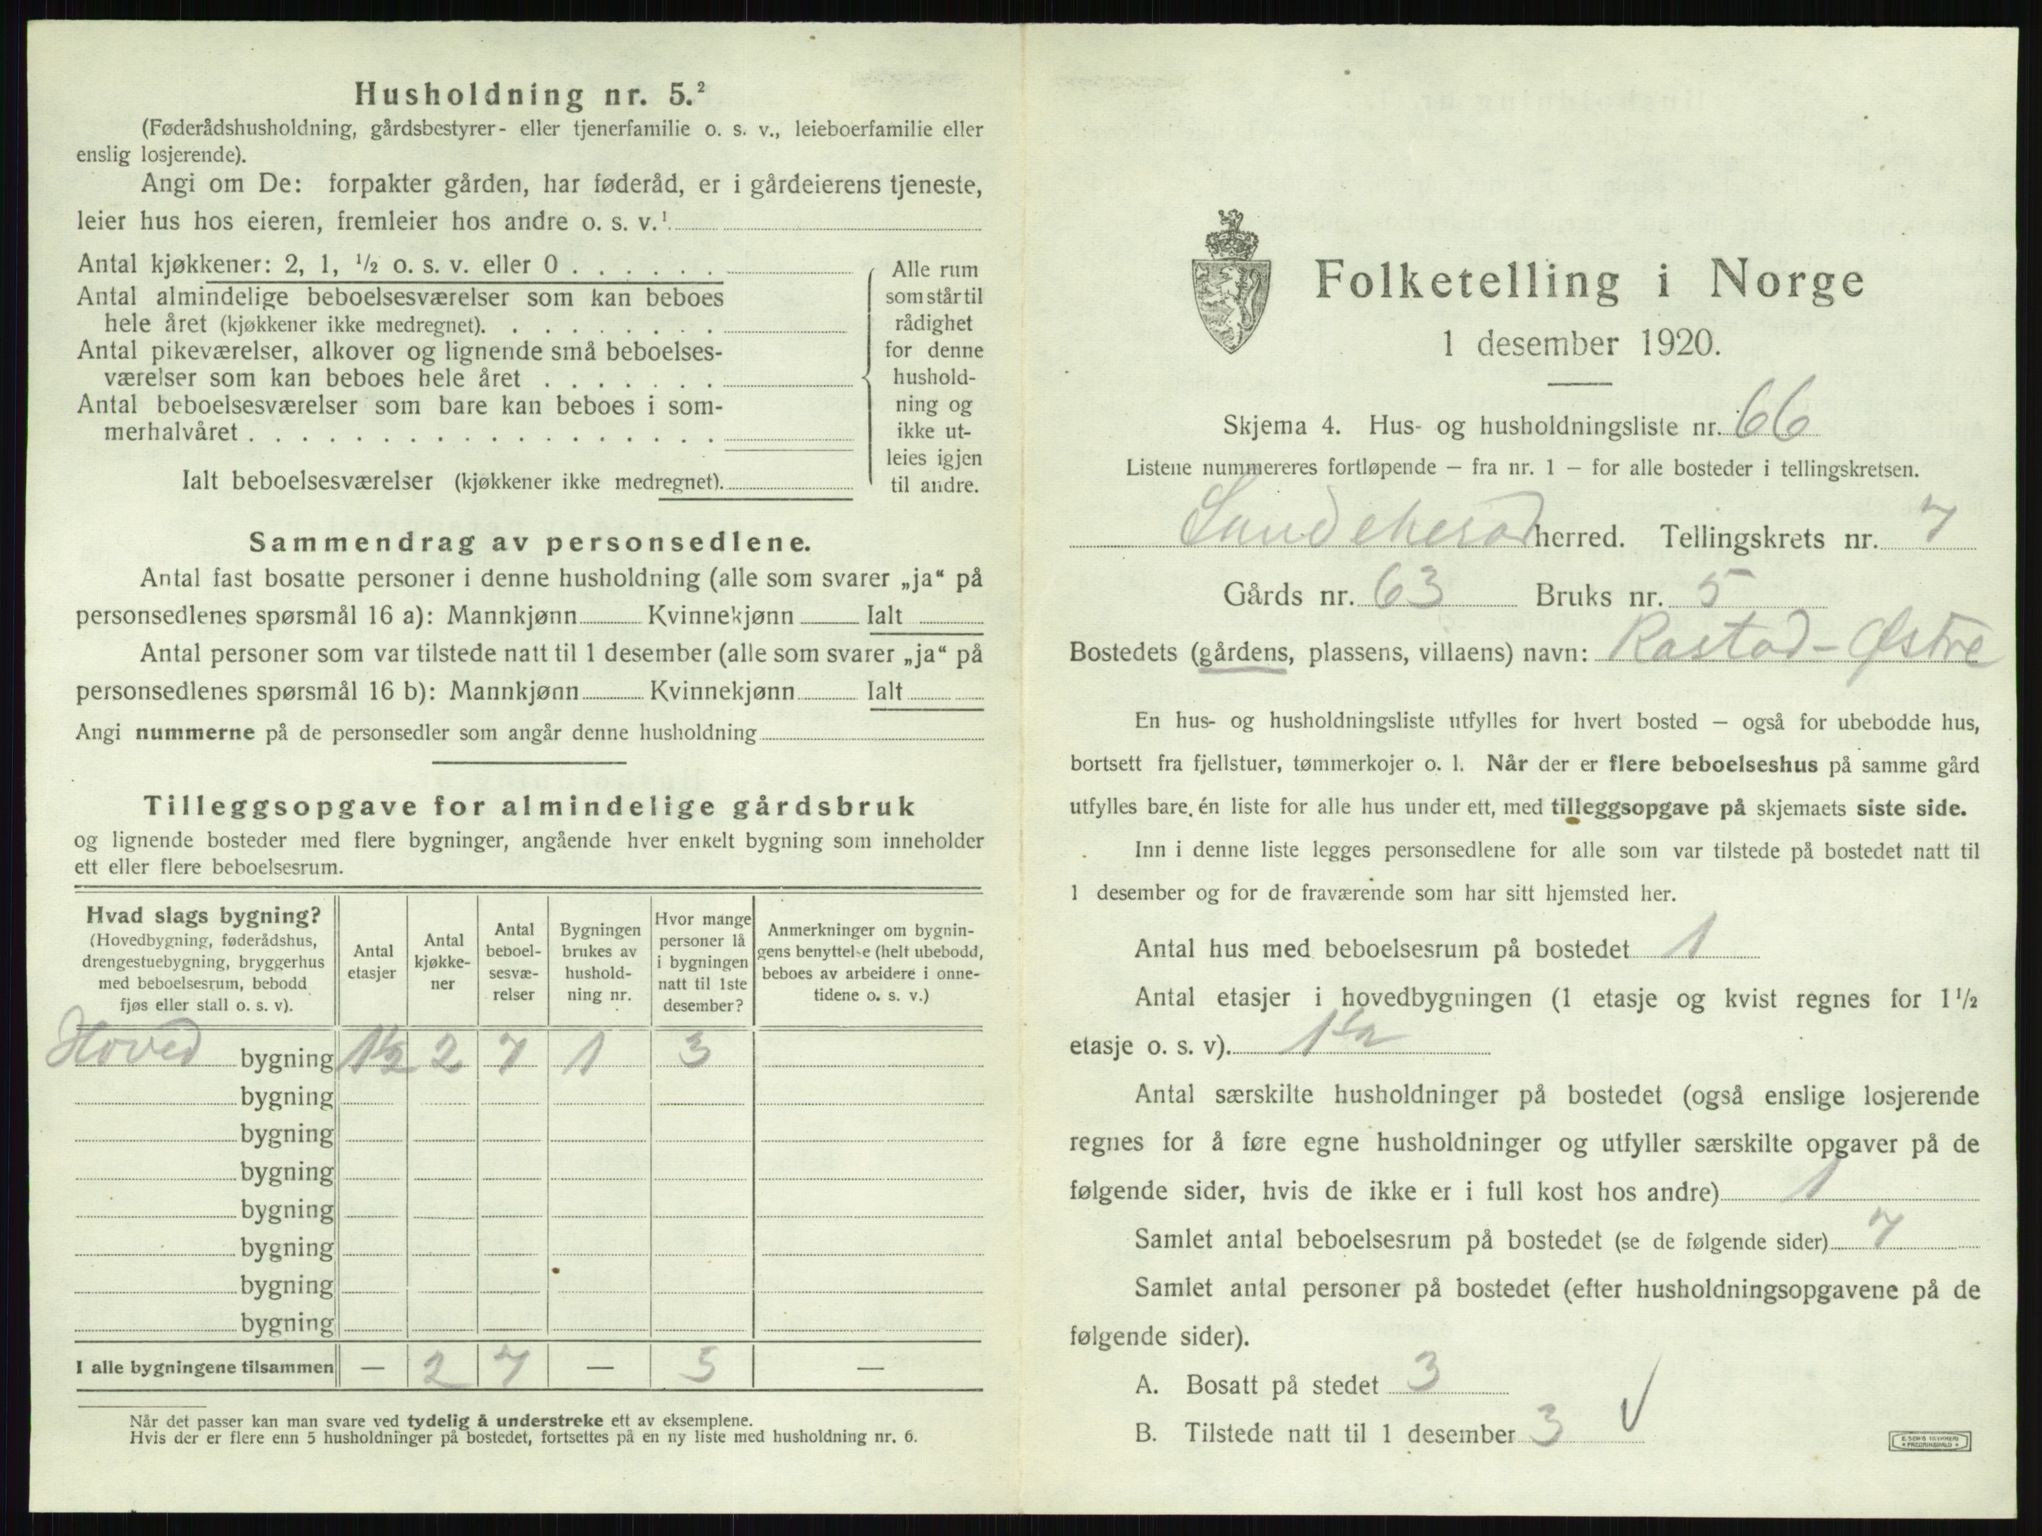 Husholdning nr. 5.²
(Føderådshusholdning, gårdsbestyrer- eller tjenerfamilie o. s. v., leieboerfamilie eller
enslig losjerende).
Angi om De: forpakter gården, har føderåd, er i gårdeierens tjeneste,
leier hus hos eieren, fremleier hos andre o. s. v.¹
Antal kjøkkener: 2, 1, ½ o. s. v. eller 0
Antal almindelige beboelsesværelser som kan beboes
hele året (kjøkkener ikke medregnet).
Antal pikeværelser, alkover og lignende små beboelses-
værelser som kan beboes hele året
Antal beboelsesværelser som bare kan beboes i som-
merhalvåret
Ialt beboelsesværelser (kjøkkener ikke medregnet).
Alle rum
som står til
rådighet
for denne
hushold-
ning og
ikke ut-
leies igjen
til andre.
Sammendrag av personsedlene.
Antal fast bosatte personer i denne husholdning (alle som svarer „ja“ på
personsedlenes spørsmål 16 a): Mannkjønn Kvinnekjønn Ialt
Antal personer som var tilstede natt til 1 desember (alle som svarer „ja“ på
personsedlenes spørsmål 16 b): Mannkjønn Kvinnekjønn Ialt
Angi nummerne på de personsedler som angår denne husholdning
Tilleggsopgave for almindelige gårdsbruk
og lignende bosteder med flere bygninger, angående hver enkelt bygning som inneholder
ett eller flere beboelsesrum.
Hvad slags bygning?
(Hovedbygning, føderådshus,
drengestuebygning, bryggerhus
med beboelsesrum, bebodd
fjøs eller stall o. s. v).
Antal
etasjer
Antal
kjøkke-
ner
Antal
beboel-
sesvæ-
relser
Bygningen
brukes av
hushold-
ning nr.
Hvor mange
personer lå
i bygningen
natt til 1ste
desember?
Anmerkninger om bygnin-
gens benyttelse (helt ubebodd,
beboes av arbeidere i onne-
tidene o. s. v.)
Hoved bygning 1½ 2 7 1 3
bygning
bygning
bygning
bygning
bygning
bygning
bygning
I alle bygningene tilsammen — 2 7 — 5 —
Når det passer kan man svare ved tydelig å understreke ett av eksemplene.
Hvis der er flere enn 5 husholdninger på bostedet, fortsettes på en ny liste med husholdning nr. 6.
Folketelling i Norge
1 desember 1920.
Skjema 4. Hus- og husholdningsliste nr. 66
Listene nummereres fortløpende – fra nr. 1 – for alle bosteder i tellingskretsen.
Sandeherad herred. Tellingskrets nr. 7
Gårds nr. 63 Bruks nr. 5
Bostedets (gårdens, plassens, villaens) navn: Rastad – Østre
En hus- og husholdningsliste utfylles for hvert bosted – også for ubebodde hus,
bortsett fra fjellstuer, tømmerkojer o. l. Når der er flere beboelseshus på samme gård
utfylles bare én liste for alle hus under ett, med tilleggsopgave på skjemaets siste side.
Inn i denne liste legges personsedlene for alle som var tilstede på bostedet natt til
1 desember og for de fraværende som har sitt hjemsted her.
Antal hus med beboelsesrum på bostedet 1
Antal etasjer i hovedbygningen (1 etasje og kvist regnes for 1½
etasje o. s. v). 1½
Antal særskilte husholdninger på bostedet (også enslige losjerende
regnes for å føre egne husholdninger og utfyller særskilte opgaver på de
følgende sider, hvis de ikke er i full kost hos andre) 1
Samlet antal beboelsesrum på bostedet (se de følgende sider) 7
Samlet antal personer på bostedet (efter husholdningsopgavene på de
følgende sider).
A. Bosatt på stedet 3
B. Tilstede natt til 1 desember 3 √